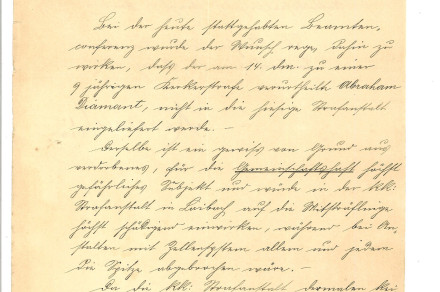 Bei der heute stattgehabten Beamten,
conferenz wurde der Wunsch rege, dahin zu
wirken, daß der am 14. dm. zu einer
9 jährigen Kerkerstrafe verurtheilte Abraham
Diamant, nicht in die hiesige Strafanstalt
eingeliefert werde. –
Derselbe ist ein gewiß von Grund aus
verdorbenes, für die Gemeinschaftshaft höchst
gefährliches Subjekt und würde in der kk:
Strafanstalt in Laibach auf die Mitsträflinge
höchst schädigend einwirken, während bei An,
stalten mit Zellensystem allem und jedem
die Spitze abgebrochen wäre. –
Da die kk: Strafanstalt dermalen bei